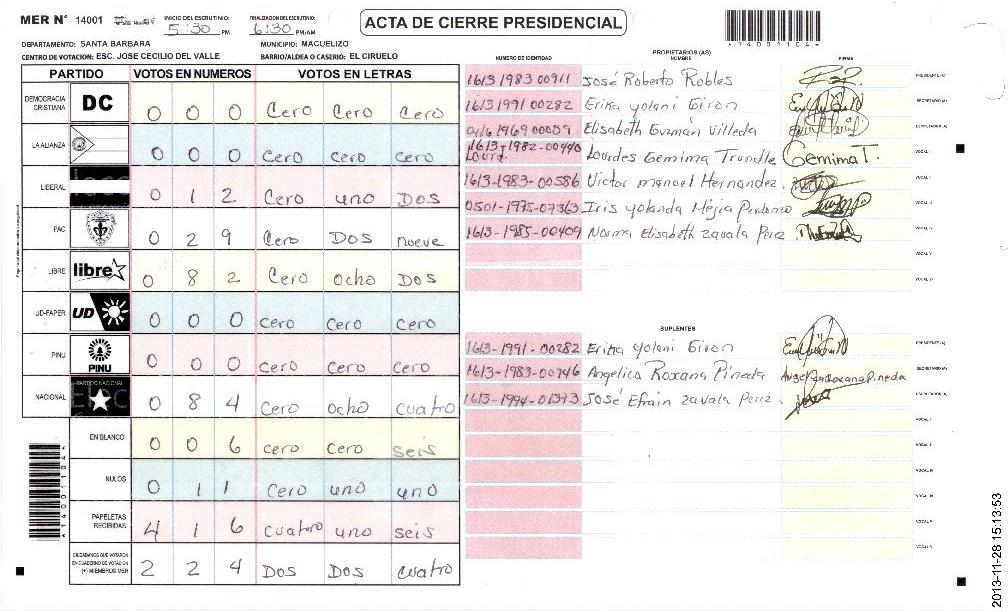 MER Nº 14001 INICIO DEL ESCRUTINIO: 5:30 PM FINALIZACION DEL ESCRUTINIO: 6:30 PM/AM
ACTA DE CIERRE PRESIDENCIAL
*14001104*
DEPARTAMENTO: SANTA BARBARA MUNICIPIO: MACUELIZO
CENTRO DE VOTACION: ESC. JOSE CECILIO DEL VALLE BARRIO/ALDEA O CASERIO: EL CIRUELO
PARTIDO VOTOS EN NUMEROS VOTOS EN LETRAS
DEMOCRACIA CRISTIANA DC 0 0 0 Cero Cero Cero
LA ALIANZA 0 0 0 Cero Cero Cero
LIBERAL 0 1 2 Cero uno Dos
PAC 0 2 9 Cero Dos nueve
LIBRE libre 0 8 2 Cero ocho Dos
UD-FAPER UD 0 0 0 Cero Cero Cero
PINU PINU 0 0 0 Cero Cero Cero
NACIONAL PARTIDO NACIONAL 0 8 4 Cero ocho cuatro
EN BLANCO 0 0 6 cero cero seis
NULOS 0 1 1 Cero uno uno
PAPELETAS RECIBIDAS 4 1 6 cuatro uno seis
CIUDADANOS QUE VOTARON EN CUADERNO DE VOTACION (+) MIEMBROS MER 2 2 4 Dos Dos cuatro
*14001104*
PROPIETARIOS (AS)
NUMERO DE IDENTIDAD NOMBRE FIRMA
1613 1983 00911 José Roberto Robles PRESIDENTE (A)
1613 1991 00282 Erika Yolani Giron SECRETARIO (A)
1969 00059 Elisabeth Guzmán Villeda ESCRUTADOR (A)
1613-1982-00440 Lourdes Gemima Trundle Gemima T. VOCAL I
Lourd.
1613-1983-00586 Victor manuel Hernandez. VOCAL II
0501-1975-07363 Iris Yolanda Mejia Perdomo VOCAL III
1613-1985-00409 Norma Elisabeth Zavala Perez VOCAL IV
VOCAL V
VOCAL VI
SUPLENTES
1613-1991-00282 Erika Yolani Giron PRESIDENTE (A)
1613-1983-00746 Angelica Roxana Pineda SECRETARIO (A)
1613-1994-01393 José Efrain Zavala Perez. ESCRUTADOR (A)
VOCAL I
VOCAL II
VOCAL III
VOCAL IV
VOCAL V
VOCAL VI
2013-11-28 15:13:53